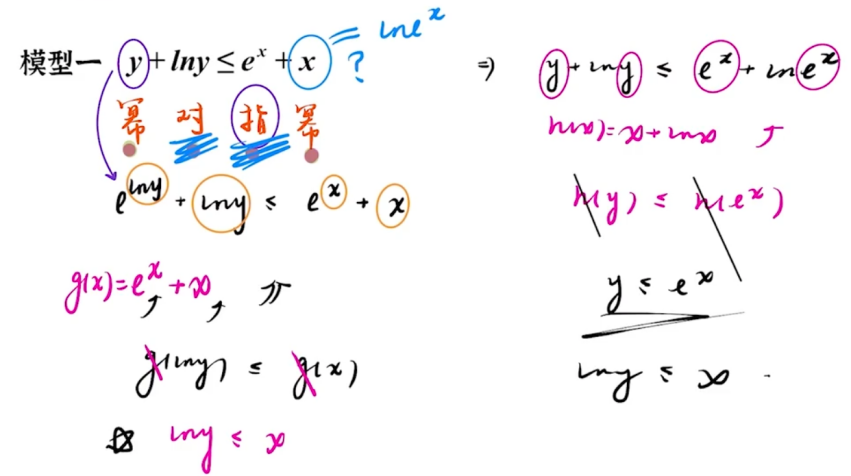 模型一 y + lny ≤ eˣ + x = lneˣ
?
幂 对 指 幂
e^lny + lny ≤ eˣ + x
g(x)=eˣ+x ↗
g(lny) ≤ g(x)
lny ≤ x
⇒ y + lny ≤ eˣ + lneˣ
h(x)=x+lnx ↑
h(y) ≤ h(eˣ)
y ≤ eˣ
lny ≤ x